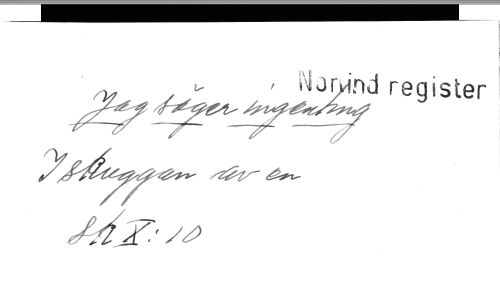 Nonind register
Jag säger ingenting
I skuggan av en
sk X: 10